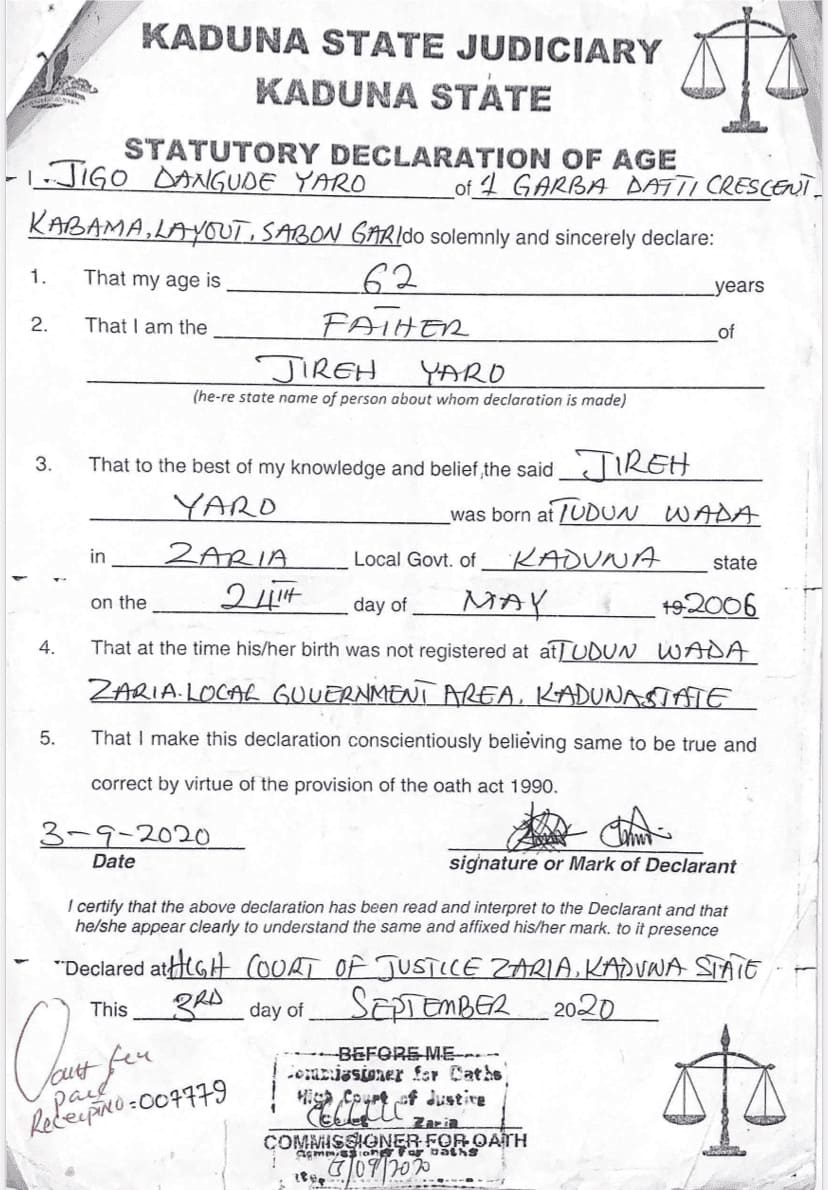 KADUNA STATE JUDICIARY
KADUNA STATE
STATUTORY DECLARATION OF AGE
I.. JIGO DANGUDE YARO of 1 GARBA DATTI CRESCENT
KABAMA, LAYOUT, SABON GARI do solemnly and sincerely declare:
1. That my age is 62 years
2. That I am the FATHER of
JIREH YARO
(he-re state name of person about whom declaration is made)
3. That to the best of my knowledge and belief, the said JIREH
YARO was born at TUDUN WADA
in ZARIA Local Govt. of KADUNA state
on the 24TH day of MAY 19 2006
4. That at the time his/her birth was not registered at at TUDUN WADA
ZARIA. LOCAL GOVERNMENT AREA, KADUNA STATE
5. That I make this declaration conscientiously believing same to be true and
correct by virtue of the provision of the oath act 1990.
3-9-2020
Date signature or Mark of Declarant
I certify that the above declaration has been read and interpret to the Declarant and that
he/she appear clearly to understand the same and affixed his/her mark. to it presence
"Declared at HIGH COURT OF JUSTICE ZARIA, KADUNA STATE
This 3RD day of SEPTEMBER 2020
Oath fee
paid
Receipt NO: 007779
BEFORE ME
Commissioner for Oaths
High Court of Justice
Zaria
COMMISSIONER FOR OATH
Commissioner for Oaths
/09/2020